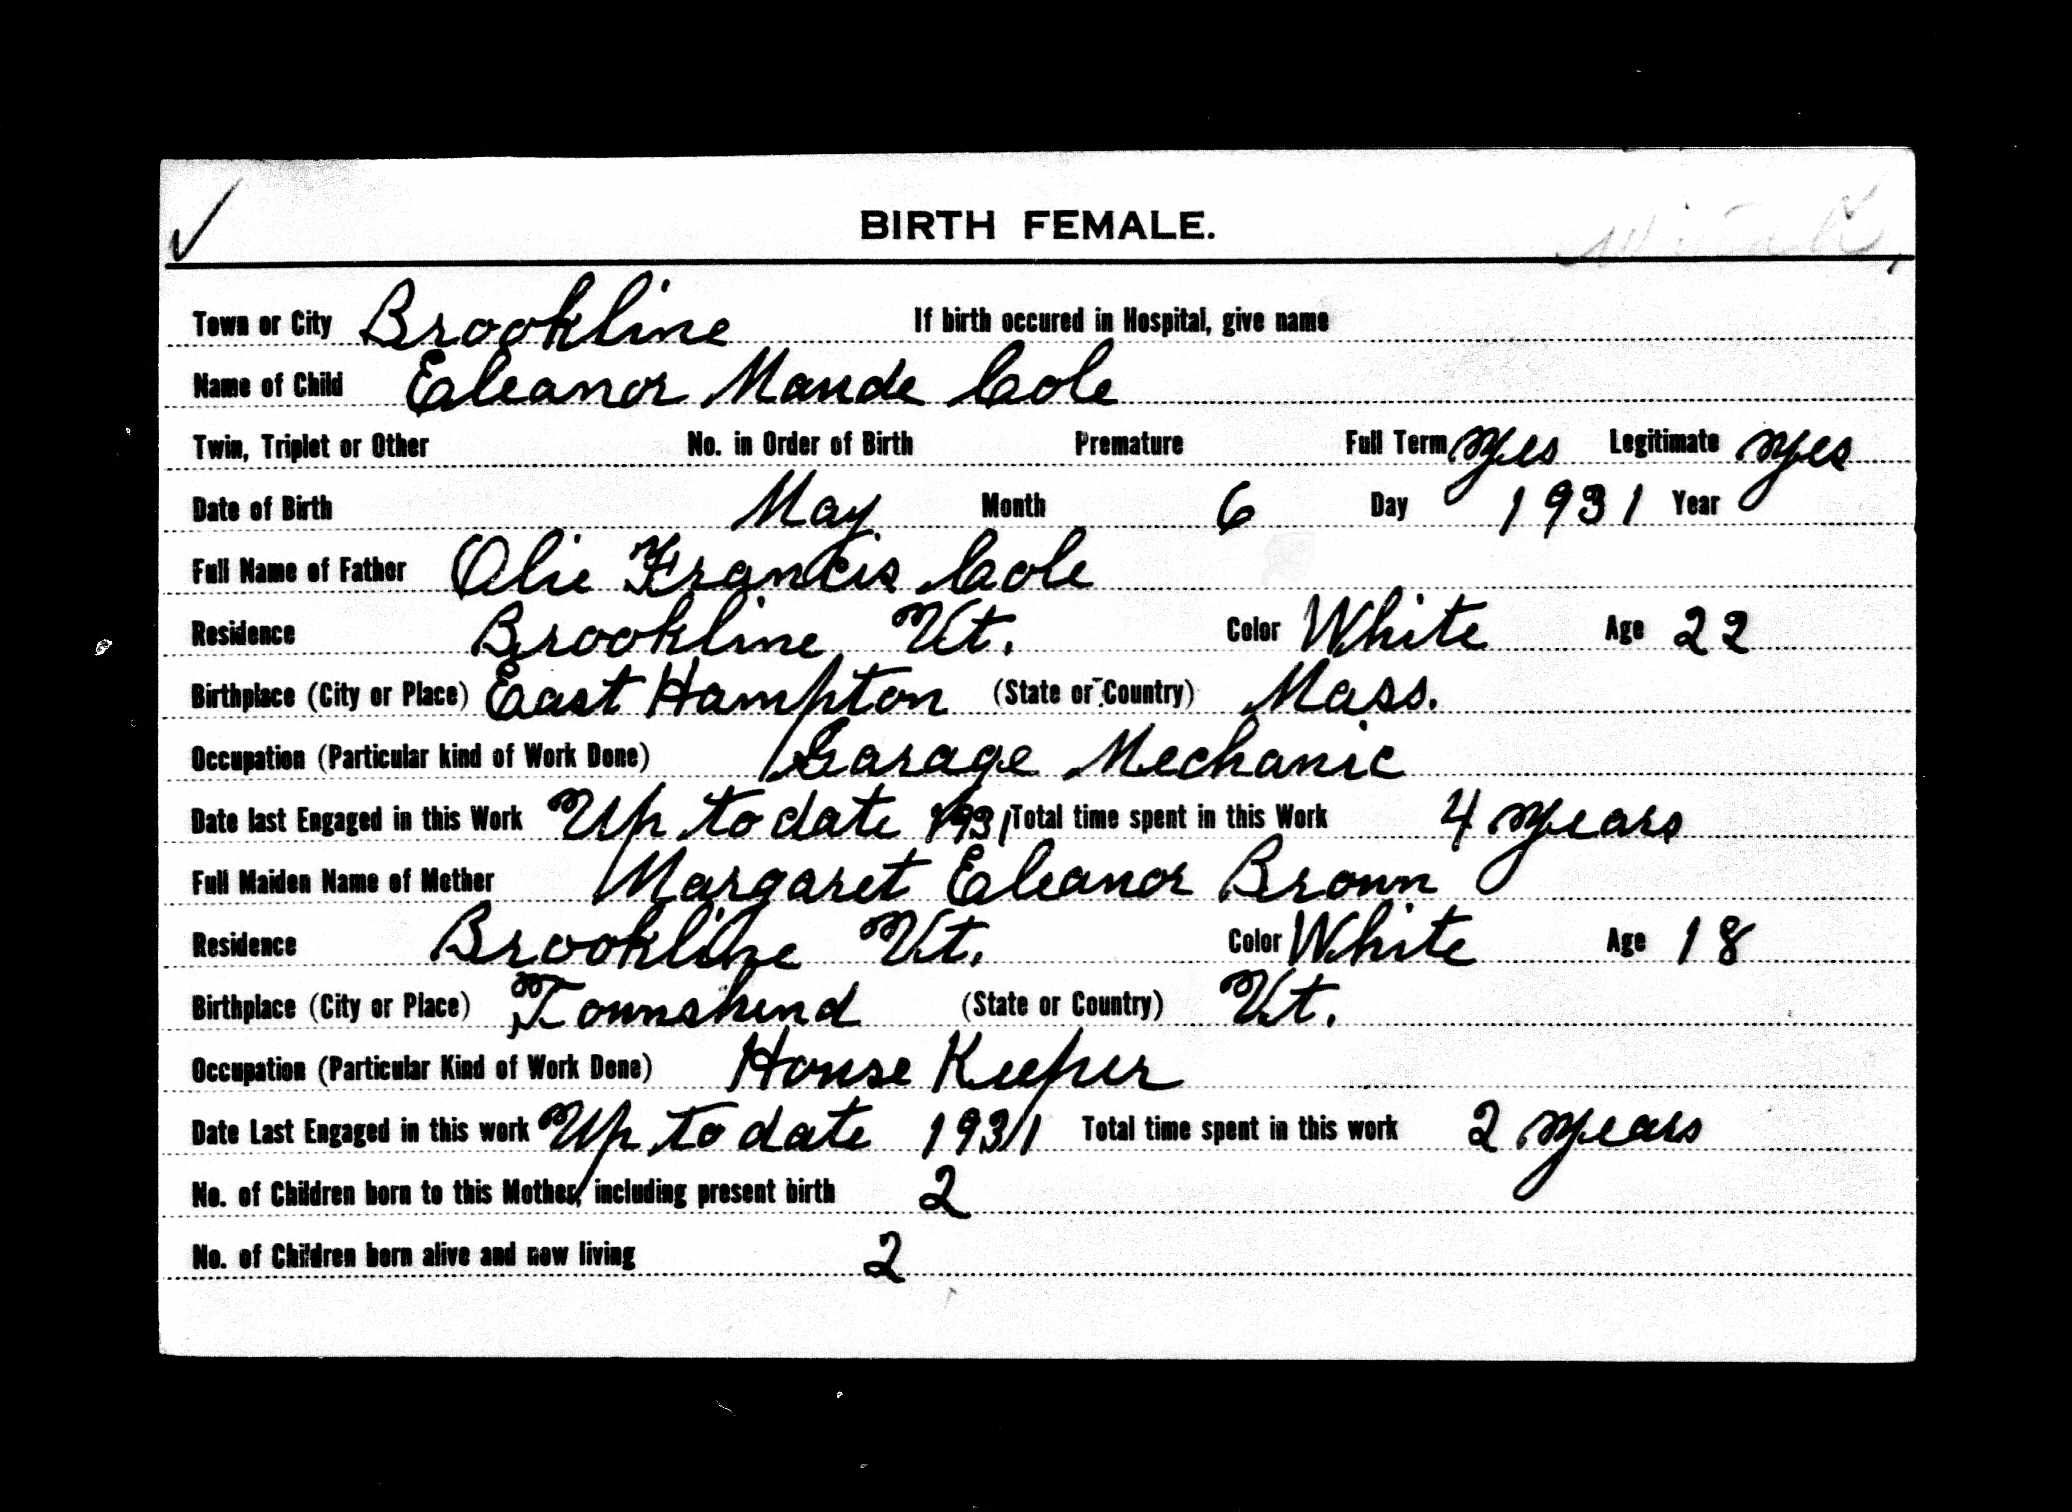 BIRTH FEMALE.
Town or City Brookline If birth occured in Hospital, give name
Name of Child Eleanor Maude Cole
Twin, Triplet or Other No. in Order of Birth Premature Full Term yes Legitimate yes
Date of Birth May Month 6 Day 1931 Year
Full Name of Father Olie Francis Cole
Residence Brookline Vt. Color White Age 22
Birthplace (City or Place) East Hampton (State or Country) Mass.
Occupation (Particular kind of Work Done) Garage Mechanic
Date last Engaged in this Work Up to date 1931 Total time spent in this Work 4 years
Full Maiden Name of Mother Margaret Eleanor Brown
Residence Brookline Vt. Color White Age 18
Birthplace (City or Place) Townshend (State or Country) Vt.
Occupation (Particular Kind of Work Done) House Keeper
Date Last Engaged in this work Up to date 1931 Total time spent in this work 2 years
No. of Children born to this Mother, including present birth 2
No. of Children born alive and now living 2